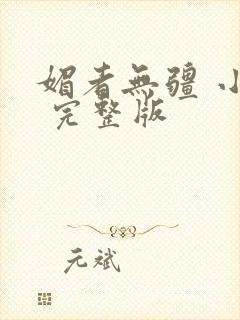 媚者無疆 小
完整版
元斌